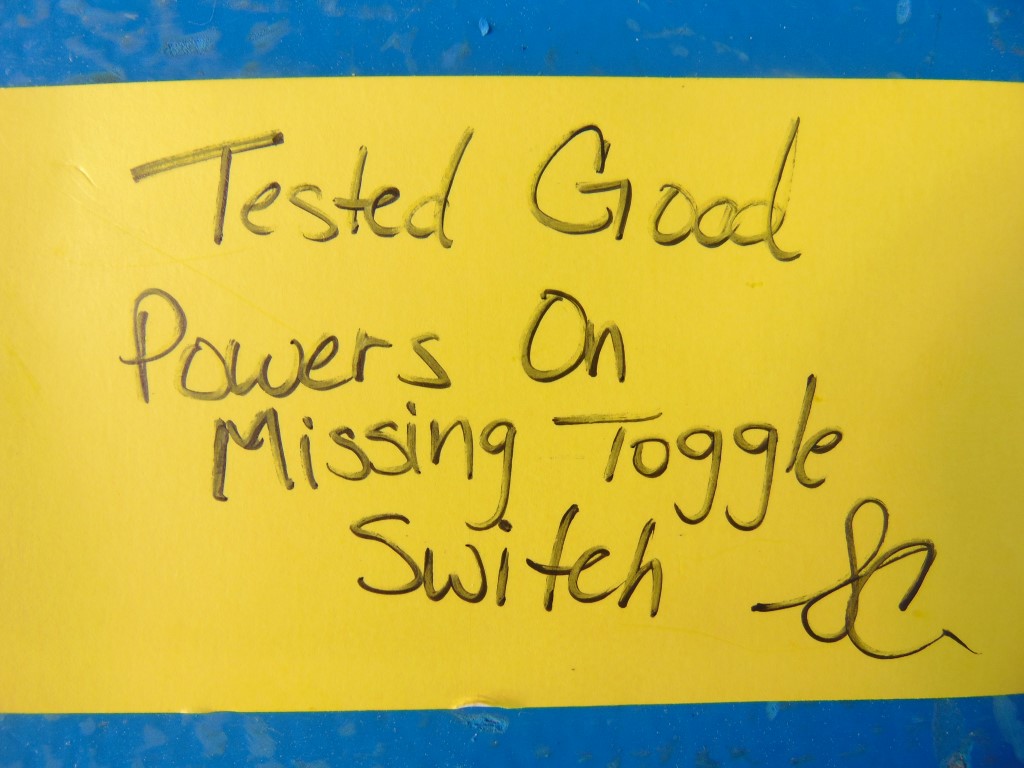 Tested Good
Powers On
Missing Toggle
Switch